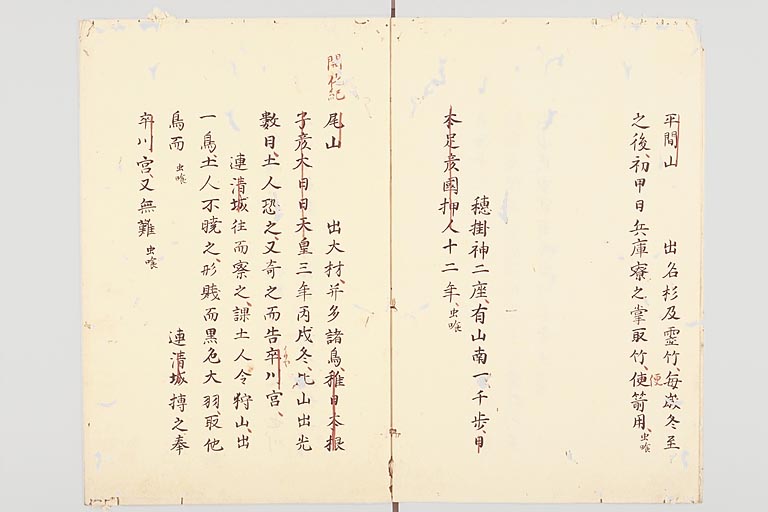 平間山　　出名杉及靈竹、毎歳冬至
之後、初甲日兵庫寮之掌取竹、使箭用、虫喰
便
穗掛神二座、有山南一、千歩、日
本足彦國押人十二年、虫喰
開化紀
尾山　　出大材、并多諸鳥、稚日本根
子彦大日日天皇三年丙戌冬、比山出光
數日、土人恐之、又奇之而告卒川宮、
連清城往而察之、課土人令狩山、出
一鳥、土人不曉之、形賤而黒色大羽、取他
鳥而　虫喰　連清城搏之奉
卒川宮、又無難　虫喰